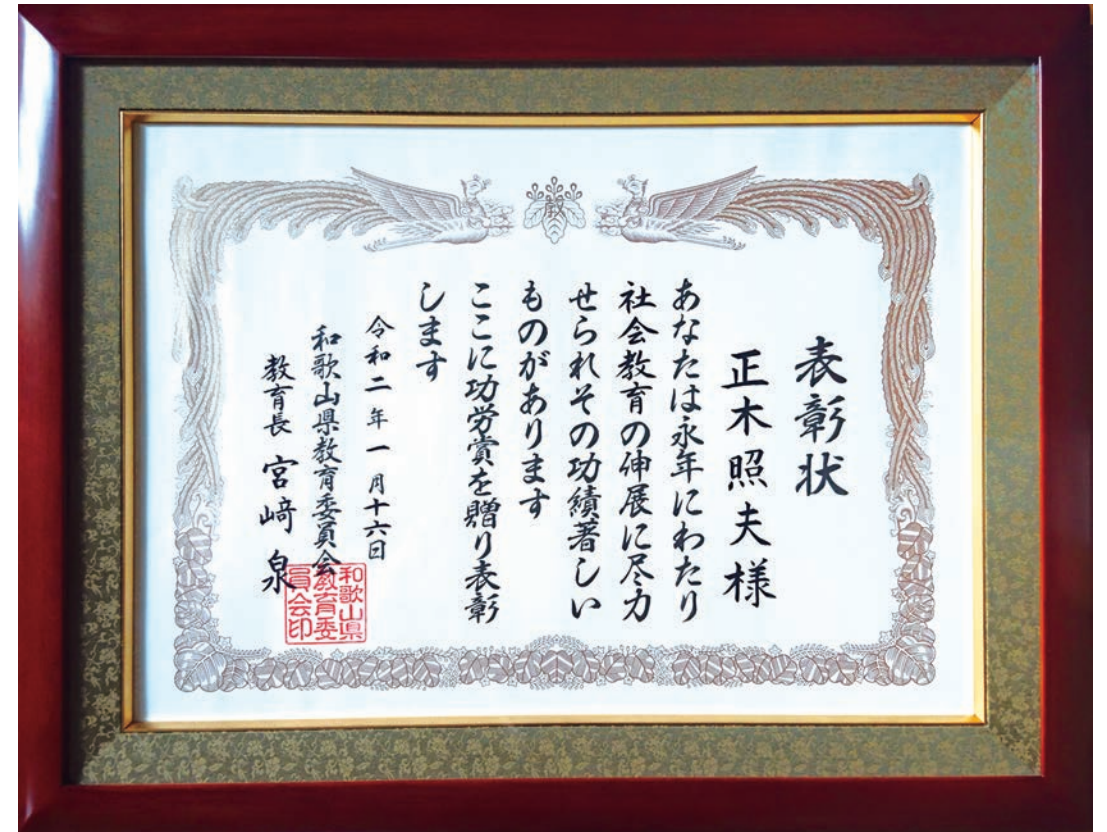 表彰状
正木照夫様
あなたは永年にわたり
社会教育の伸展に尽力
せられその功績著しい
ものがあります
ここに功労賞を贈り表彰
します
令和二年一月十六日
和歌山県教育委員会
教育長 宮﨑泉
和歌山県
教育委
員会印
教